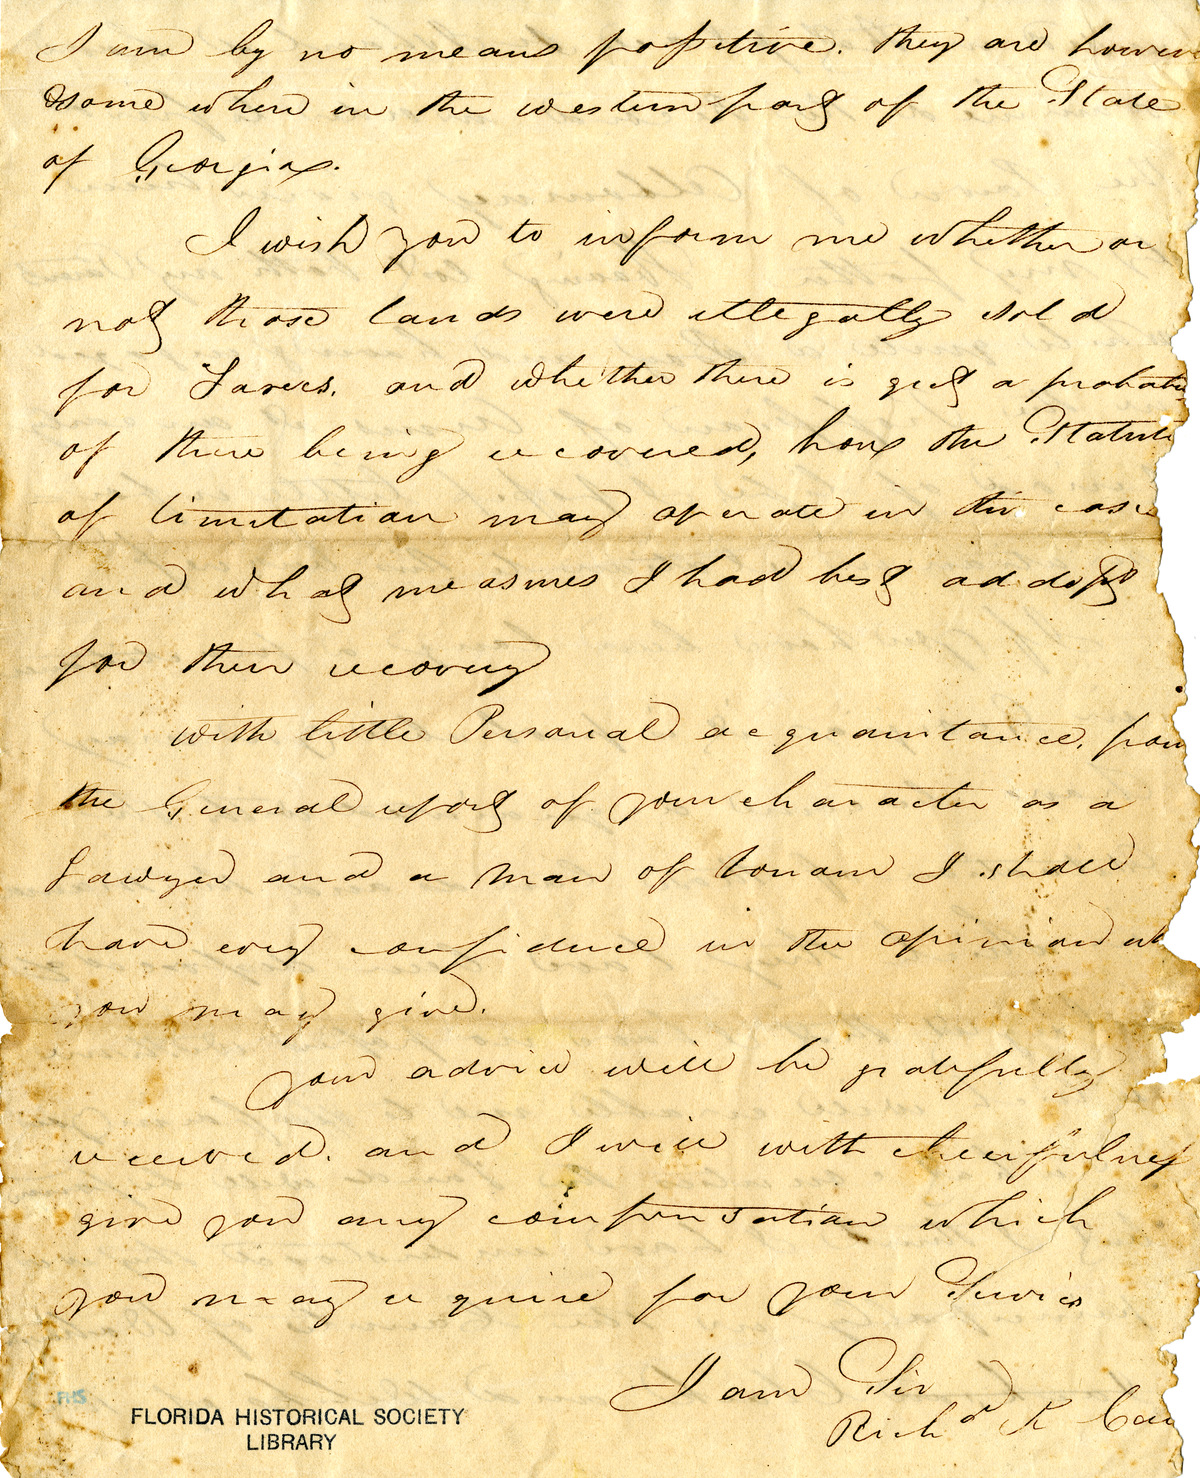 I am by no means possitive. they are howeve
some where in the western part of the State
of Georgia.
I wish you to inform me whether or
not those lands were illegally sold
for Taxes. and whether there is yet a probabi
of there being recovered, how the Statute
of limitation may operate in this case
and what measures I had best addopt
for their recovery
with little Personal acquaintance, from
the General report of your character as a
Lawyer and a man of honour I shall
have every confidence in the opinion wh
you may give.
Your advice will be gratefully
received. and I will with cheerfulness
give you any compensation which
you may require for your Services
I am Sir
Richd K Ca
FHS
FLORIDA HISTORICAL SOCIETY
LIBRARY